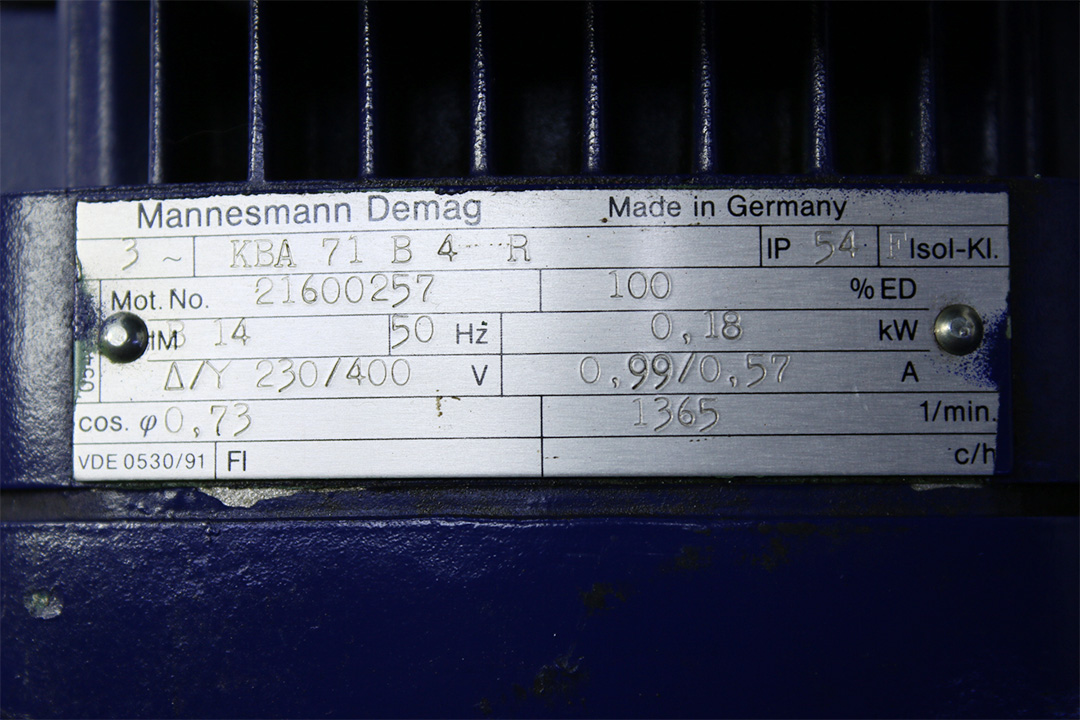 Mannesmann Demag Made in Germany
3 ~ KBA 71 B 4 R IP 54 F Isol-Kl.
Mot. No. 21600257 100 % ED
B 14 50 Hz 0,18 kW
Δ/Y 230/400 V 0,99/0,57 A
cos. φ 0,73 1365 1/min.
VDE 0530/91 FI c/h